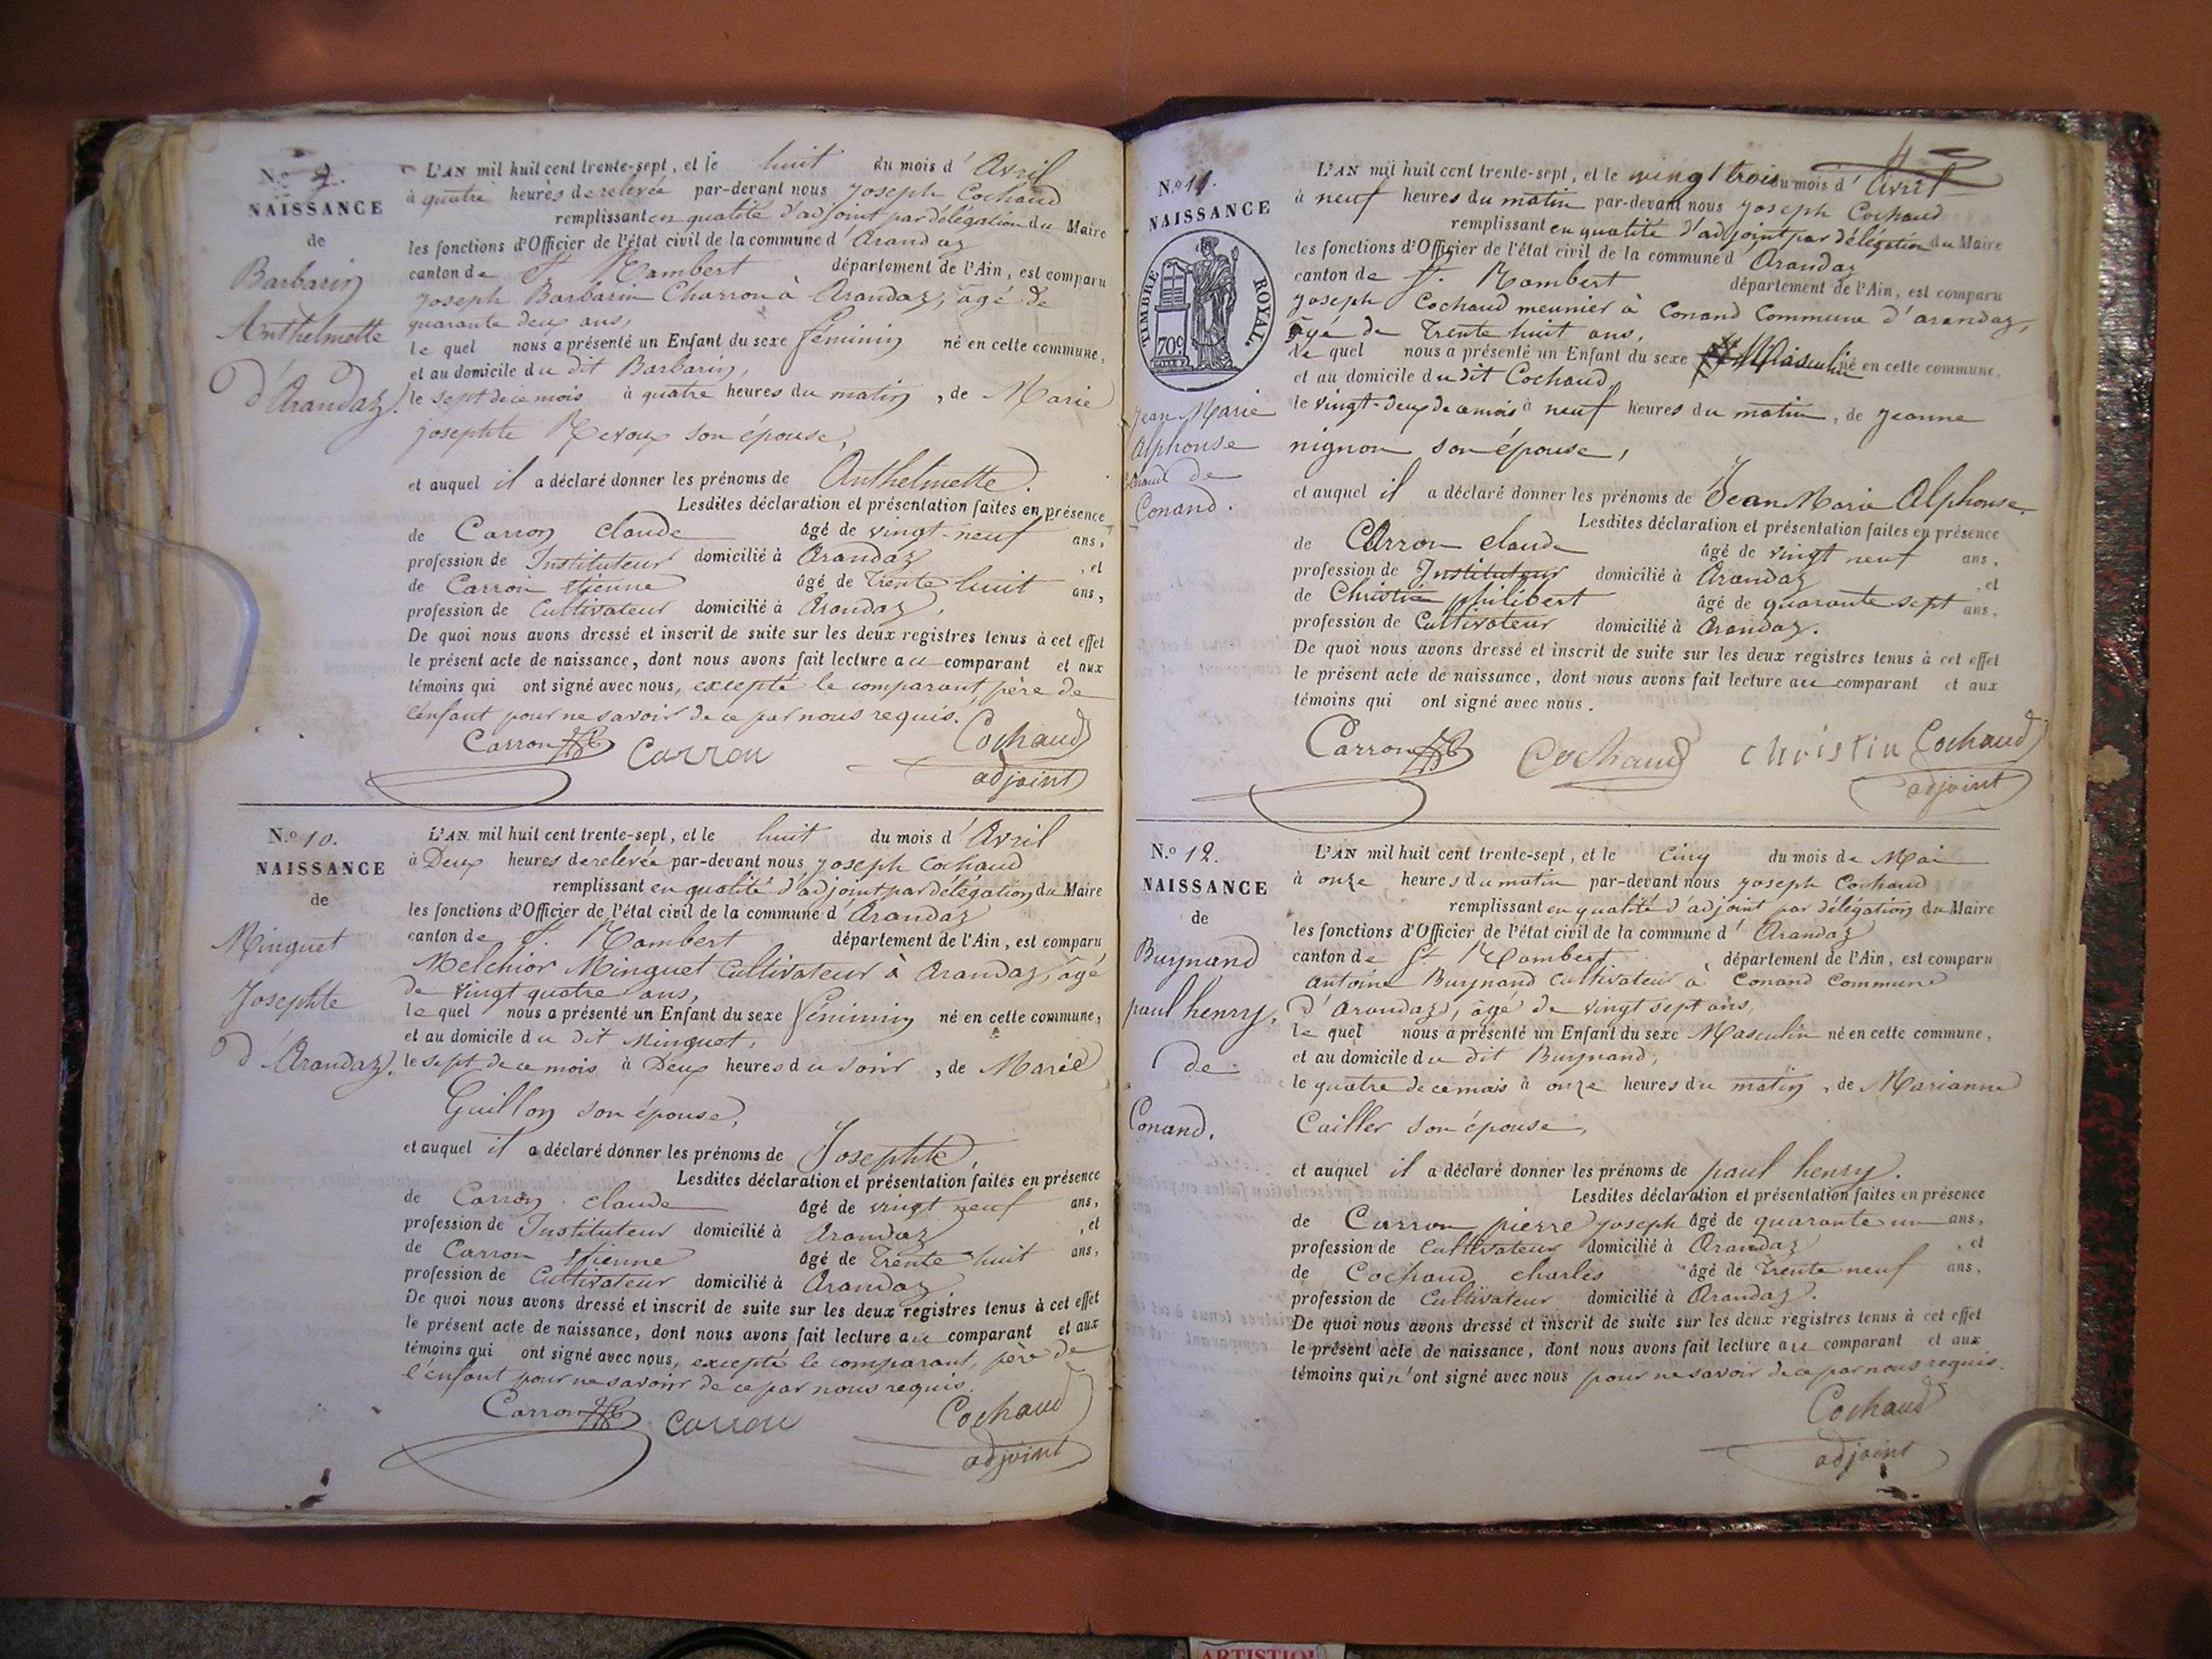 N.o 9.
NAISSANCE
de
Barbarin
Anthelmette
d'Arandaz.
L'AN mil huit cent trente-sept, et le huit du mois d'Avril
à quatre heures de relevée par-devant nous Joseph Cochaud
remplissant en qualité d'adjoint par délégation du Maire
les fonctions d'Officier de l'état civil de la commune d'Arandaz
canton de St. Rambert département de l'Ain, est comparu
Joseph Barbarin Charron à Arandaz, âgé de
quarante deux ans,
le quel nous a présenté un Enfant du sexe féminin né en cette commune,
et au domicile du dit Barbarin,
le sept de ce mois à quatre heures du matin, de Marie
Josephte Revoux son épouse,
et auquel il a déclaré donner les prénoms de Anthelmette.
Lesdites déclaration et présentation faites en présence
de Carron claude âgé de vingt-neuf ans,
profession de Instituteur domicilié à Arandaz, et
de Carron etienne âgé de trente huit ans,
profession de Cultivateur domicilié à Arandaz.
De quoi nous avons dressé et inscrit de suite sur les deux registres tenus à cet effet
le présent acte de naissance, dont nous avons fait lecture au comparant et aux
témoins qui ont signé avec nous, excepté le comparant père de
l'enfant pour ne savoir de ce par nous requis.
Carron Carron Cochaud
adjoint
N.o 10.
NAISSANCE
de
Minguet
Josephte
d'Arandaz.
L'AN mil huit cent trente-sept, et le huit du mois d'Avril
à Deux heures de relevée par-devant nous Joseph Cochaud
remplissant en qualité d'adjoint par délégation du Maire
les fonctions d'Officier de l'état civil de la commune d'Arandaz
canton de St. Rambert département de l'Ain, est comparu
Melchior Minguet Cultivateur à Arandaz, âgé
de vingt quatre ans,
le quel nous a présenté un Enfant du sexe féminin né en cette commune,
et au domicile du dit Minguet,
le sept de ce mois à Deux heures du soir, de Marie
Guillon son épouse,
et auquel il a déclaré donner les prénoms de Josephte,
Lesdites déclaration et présentation faites en présence
de Carron claude âgé de vingt neuf ans,
profession de Instituteur domicilié à Arandaz, et
de Carron etienne âgé de trente huit ans,
profession de Cultivateur domicilié à Arandaz.
De quoi nous avons dressé et inscrit de suite sur les deux registres tenus à cet effet
le présent acte de naissance, dont nous avons fait lecture au comparant et aux
témoins qui ont signé avec nous, excepté le comparant, père de
l'enfant pour ne savoir de ce par nous requis.
Carron Carron Cochaud
adjoint
N.o 11.
NAISSANCE
TIMBRE ROYAL.
70c
Jean Marie
Alphonse
Cochaud de
Conand.
L'AN mil huit cent trente-sept, et le vingt trois du mois d'Avril
à neuf heures du matin par-devant nous Joseph Cochaud
remplissant en qualité d'adjoint par délégation du Maire
les fonctions d'Officier de l'état civil de la commune d'Arandaz
canton de St. Rambert département de l'Ain, est comparu
Joseph Cochaud meunier à Conand Commune d'arandaz,
âgé de trente huit ans,
le quel nous a présenté un Enfant du sexe Masculin né en cette commune,
et au domicile du dit Cochaud,
le vingt-deux de ce mois à neuf heures du matin, de Jeanne
nignon son épouse,
et auquel il a déclaré donner les prénoms de Jean Marie Alphonse.
Lesdites déclaration et présentation faites en présence
de Carron claude âgé de vingt neuf ans,
profession de Instituteur domicilié à Arandaz, et
de Christin philibert âgé de quarante sept ans,
profession de Cultivateur domicilié à Arandaz.
De quoi nous avons dressé et inscrit de suite sur les deux registres tenus à cet effet
le présent acte de naissance, dont nous avons fait lecture au comparant et aux
témoins qui ont signé avec nous.
Carron Cochaud christin Cochaud
adjoint
N.o 12.
NAISSANCE
de
Buynand
paul henry,
de
Conand.
L'AN mil huit cent trente-sept, et le cinq du mois de Mai
à onze heures du matin par-devant nous Joseph Cochaud
remplissant en qualité d'adjoint par délégation du Maire
les fonctions d'Officier de l'état civil de la commune d'Arandaz
canton de St. Rambert département de l'Ain, est comparu
antoine Buynand cultivateur à Conand Commune
d'Arandaz, âgé de vingt sept ans,
le quel nous a présenté un Enfant du sexe Masculin né en cette commune,
et au domicile du dit Buynand,
le quatre de ce mois à onze heures du matin, de Marianne
Cailler son épouse,
et auquel il a déclaré donner les prénoms de paul henry.
Lesdites déclaration et présentation faites en présence
de Carron pierre joseph âgé de quarante un ans,
profession de Cultivateur domicilié à Arandaz, et
de Cochaud charles âgé de trente neuf ans,
profession de Cultivateur domicilié à Arandaz.
De quoi nous avons dressé et inscrit de suite sur les deux registres tenus à cet effet
le présent acte de naissance, dont nous avons fait lecture au comparant et aux
témoins qui n'ont signé avec nous pour ne savoir de ce par nous requis.
Cochaud
adjoint